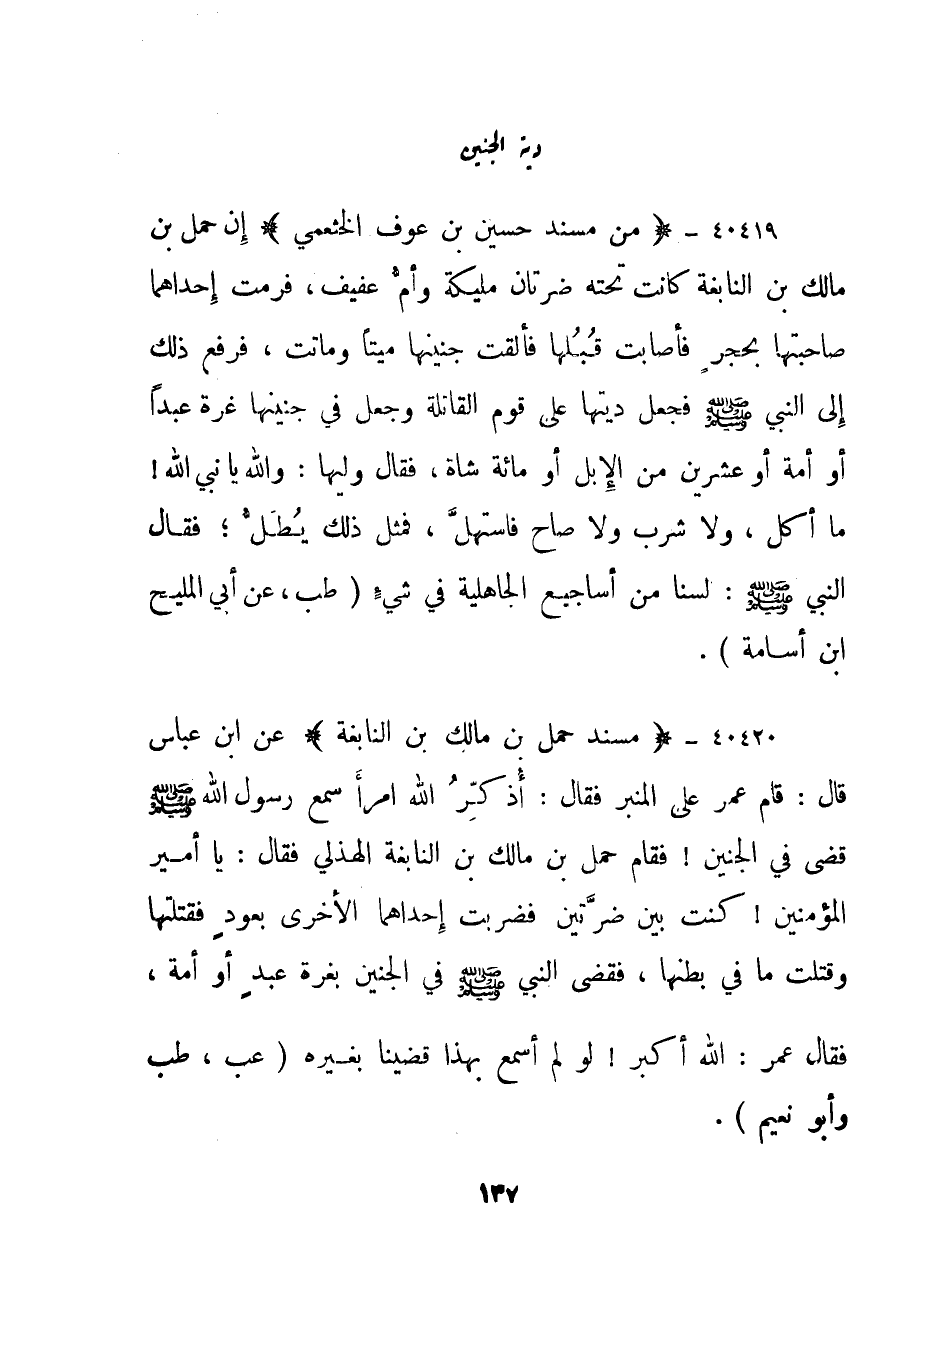 دية الجنين
٤٠٤١٩ ـ ﴿ من مسند حسين بن عوف الخثعمي ﴾ إن حمل بن
مالك بن النابغة كانت تحته ضرتان مليكة وأمُّ عفيف ، فرمت إحداهما
صاحبتها بحجرٍ فأصابت قُبُلها فألقت جنينها ميتاً وماتت ، فرفع ذلك
إلى النبي ﷺ فجعل ديتها على قوم القاتلة وجعل في جنينها غرة عبداً
أو أمة أو عشرين من الإبل أو مائة شاة ، فقال وليها : والله يا نبي الله !
ما أكل ، ولا شرب ولا صاح فاستهلَّ ، فمثل ذلك يُطَلُّ ؛ فقال
النبي ﷺ : لسنا من أساجيع الجاهلية في شيءٍ ( طب ، عن أبي المليح
ابن أسامة ) .
٤٠٤٢٠ ـ ﴿ مسند حمل بن مالك بن النابغة ﴾ عن ابن عباس
قال : قام عمر على المنبر فقال : أُذكِّرُ الله امرأً سمع رسول الله ﷺ
قضى في الجنين ! فقام حمل بن مالك بن النابغة الهذلي فقال : يا أمير
المؤمنين ! كنت بين ضرَّتين فضربت إحداهما الأخرى بعودٍ فقتلتها
وقتلت ما في بطنها ، فقضى النبي ﷺ في الجنين بغرة عبدٍ أو أمة ،
فقال عمر : الله أكبر ! لو لم أسمع بهذا قضينا بغيره ( عب ، طب
وأبو نعيم ) .
١٣٧